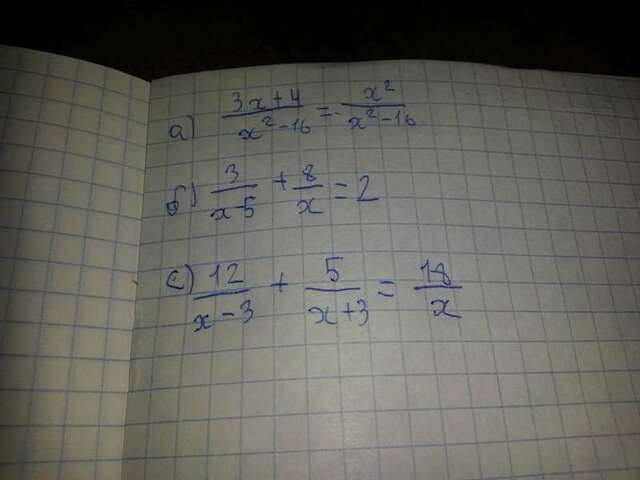 а) (3x+4)/(x²-16) = x²/(x²-16)
б) 3/(x-5) + 8/x = 2
с) 12/(x-3) + 5/(x+3) = 18/x